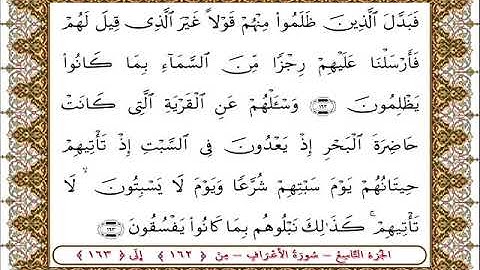 فَبَدَّلَ ٱلَّذِينَ ظَلَمُوا۟ مِنْهُمْ قَوْلًا غَيْرَ ٱلَّذِى قِيلَ لَهُمْ
فَأَرْسَلْنَا عَلَيْهِمْ رِجْزًا مِّنَ ٱلسَّمَآءِ بِمَا كَانُوا۟
يَظْلِمُونَ ١٦٢ وَسْـَٔلْهُمْ عَنِ ٱلْقَرْيَةِ ٱلَّتِى كَانَتْ
حَاضِرَةَ ٱلْبَحْرِ إِذْ يَعْدُونَ فِى ٱلسَّبْتِ إِذْ تَأْتِيهِمْ
حِيتَانُهُمْ يَوْمَ سَبْتِهِمْ شُرَّعًا وَيَوْمَ لَا يَسْبِتُونَ ۙ لَا
تَأْتِيهِمْ ۚ كَذَٰلِكَ نَبْلُوهُم بِمَا كَانُوا۟ يَفْسُقُونَ ١٦٣
الجزء التاسع - سورة الأعراف - من ﴿١٦٢﴾ إلى ﴿١٦٣﴾